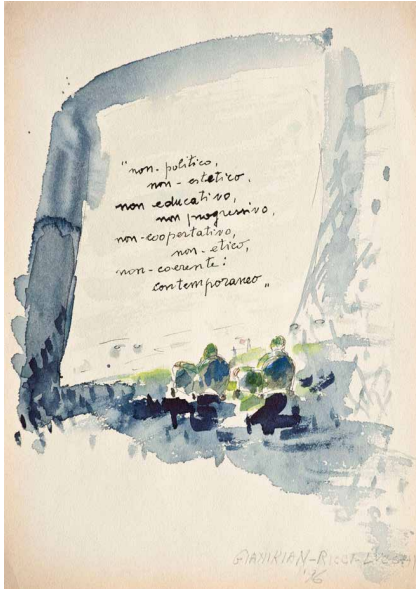 "non-politico,
non-estetico,
non educativo,
non progressivo,
non-coopertativo,
non-etico,
non-coerente:
contemporaneo"
GIANIKIAN-RICCI-LUCCHI
'76